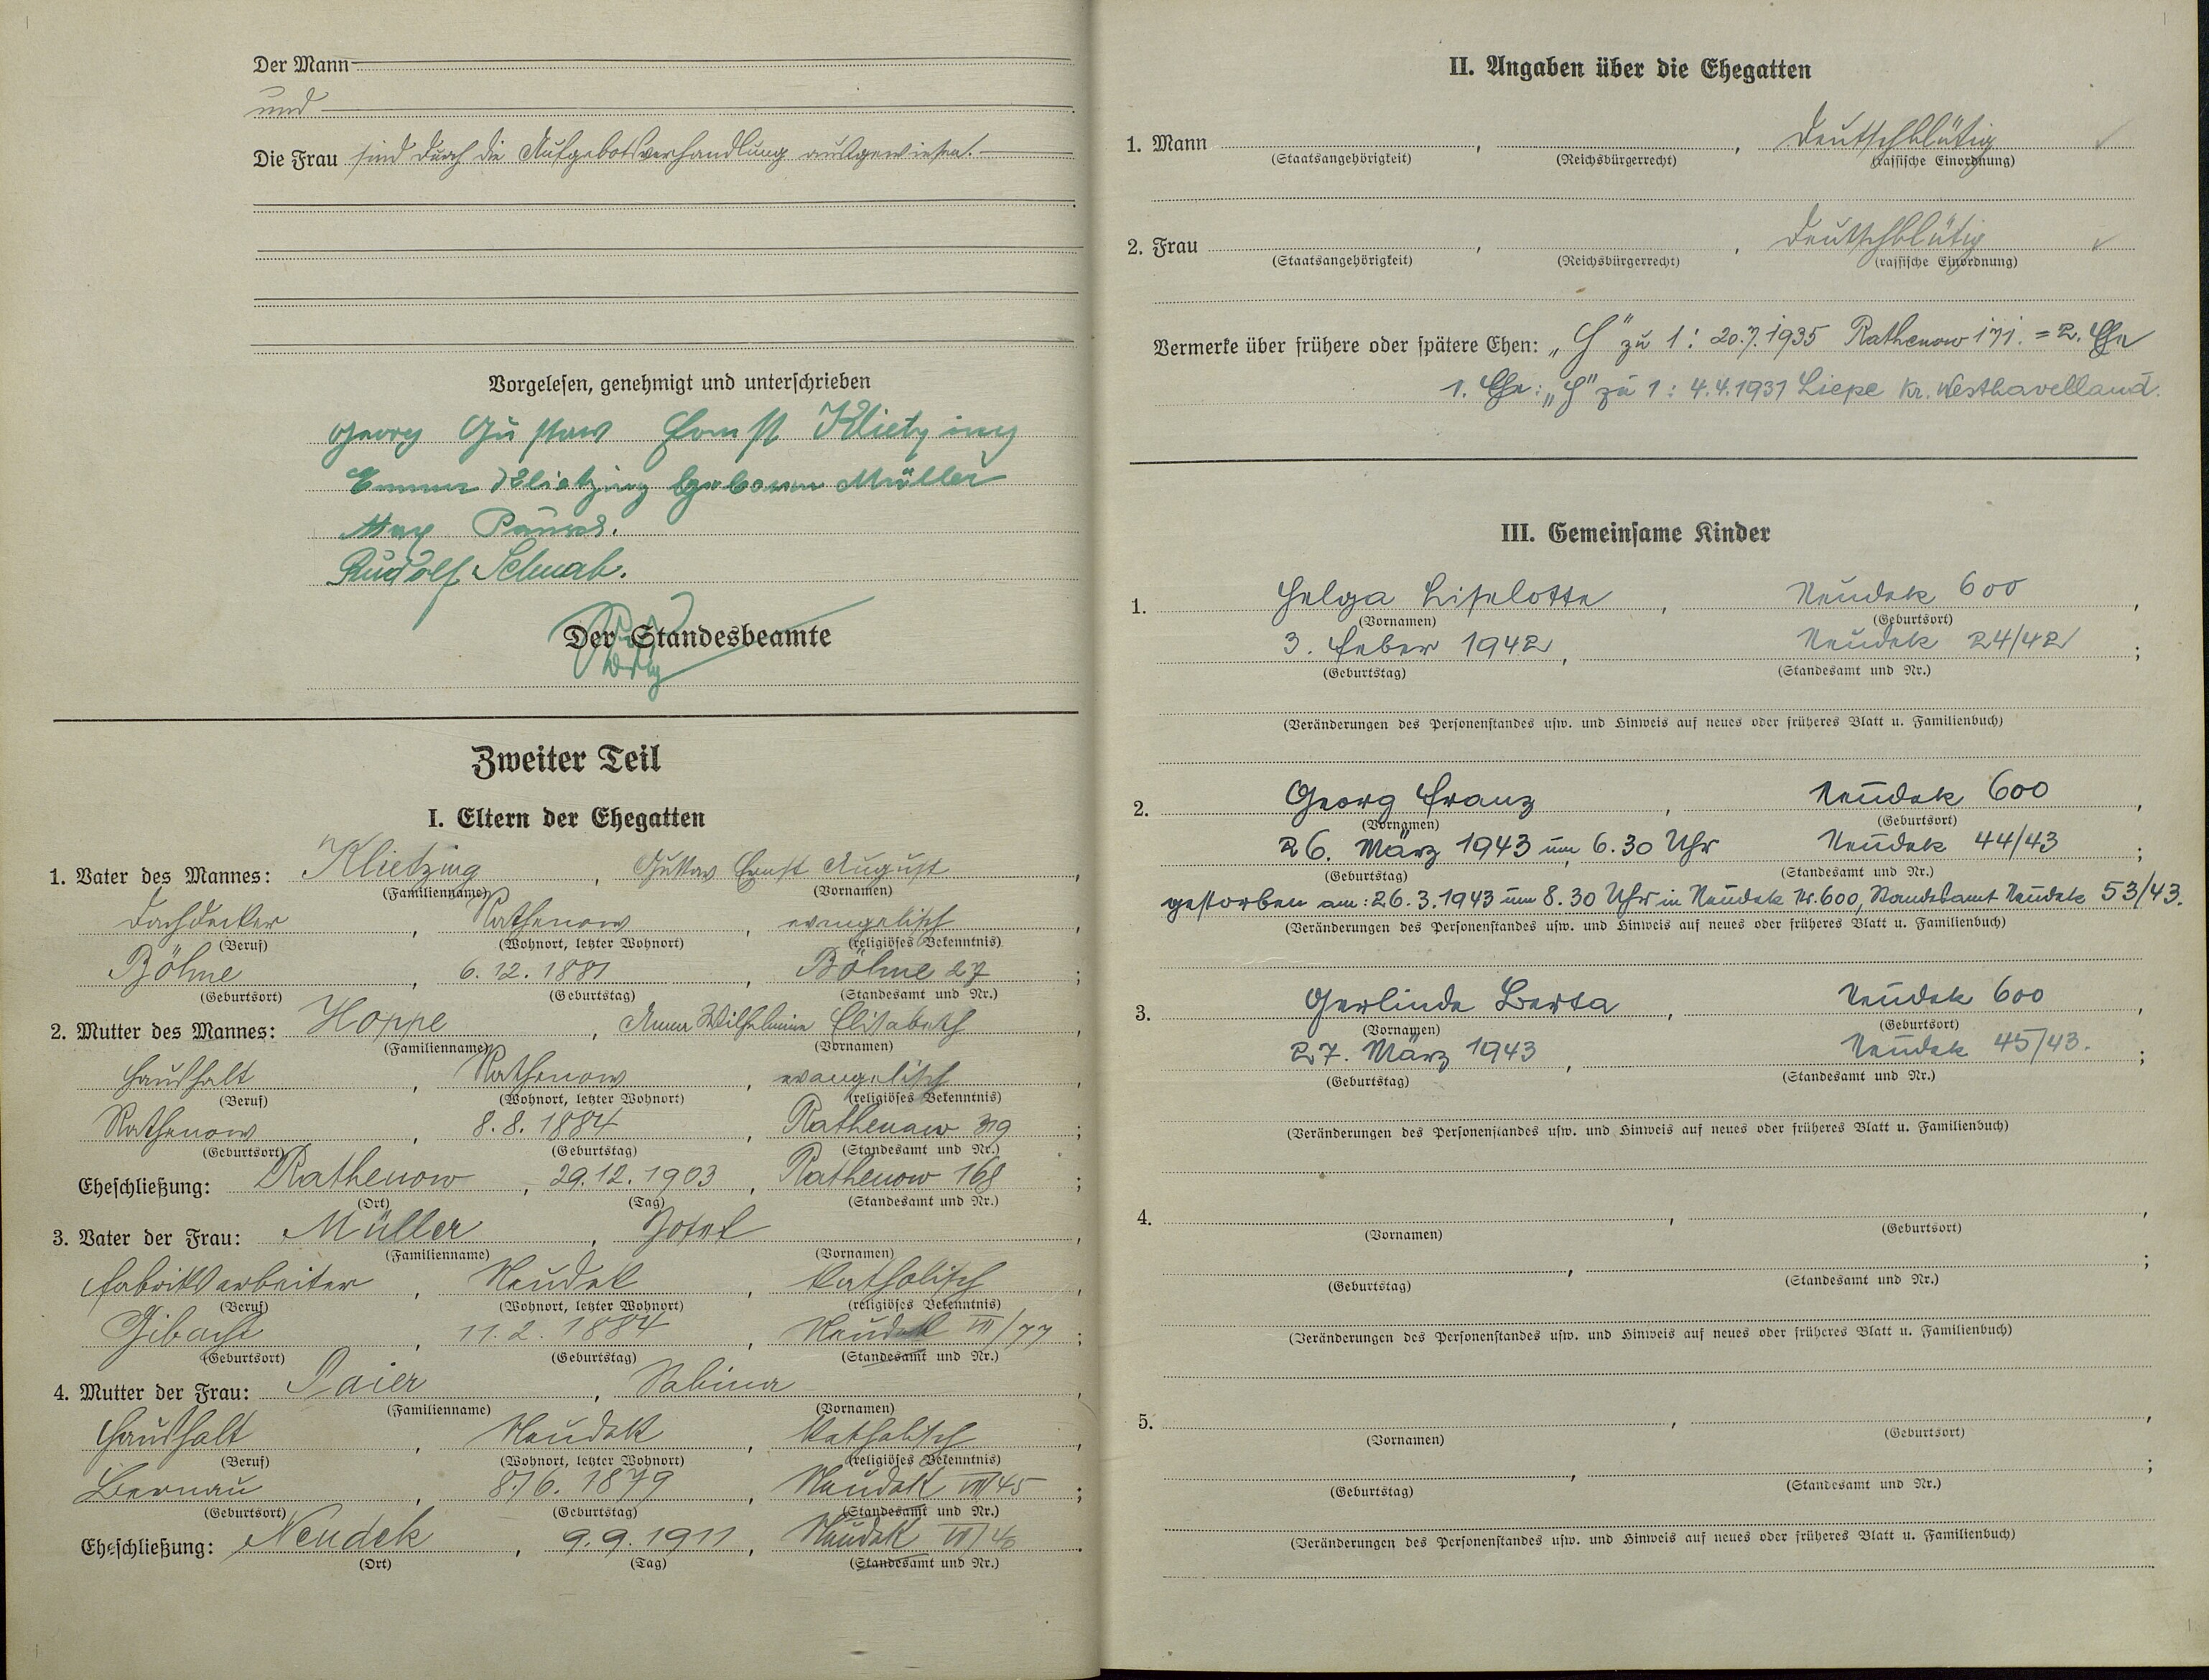 Der Mann
und
Die Frau sind durch die Aufgebotsverhandlung ausgewiesen.
Vorgelesen, genehmigt und unterschrieben
Georg Gustav Ernst Klietzing
Emma Klietzing geborene Müller
Max
Rudolf Schwab.
Der Standesbeamte
Zweiter Teil
I. Eltern der Ehegatten
1. Vater des Mannes: Klietzing, Gustav Ernst August,
(Familienname) (Vornamen)
Dachdecker, Rathenow, evangelisch,
(Beruf) (Wohnort, letzter Wohnort) (religiöses Bekenntnis)
Böhne, 6.12.1881, Böhne 27;
(Geburtsort) (Geburtstag) (Standesamt und Nr.)
2. Mutter des Mannes: Hoppe, Anna Wilhelmine Elisabeth,
(Familienname) (Vornamen)
Haushalt, Rathenow, evangelisch,
(Beruf) (Wohnort, letzter Wohnort) (religiöses Bekenntnis)
Rathenow, 8.8.1884, Rathenow 319;
(Geburtsort) (Geburtstag) (Standesamt und Nr.)
Eheschließung: Rathenow, 29.12.1903, Rathenow 168;
(Ort) (Tag) (Standesamt und Nr.)
3. Vater der Frau: Müller, Josef,
(Familienname) (Vornamen)
Fabriksarbeiter, Neudek, katholisch,
(Beruf) (Wohnort, letzter Wohnort) (religiöses Bekenntnis)
Gibacht, 11.2.1884, Neudek VII/77;
(Geburtsort) (Geburtstag) (Standesamt und Nr.)
4. Mutter der Frau: Paier, Sabina,
(Familienname) (Vornamen)
Haushalt, Neudek, katholisch,
(Beruf) (Wohnort, letzter Wohnort) (religiöses Bekenntnis)
Bernau, 8.6.1879, Neudek VII/45;
(Geburtsort) (Geburtstag) (Standesamt und Nr.)
Eheschließung: Neudek, 9.9.1911, Neudek
(Ort) (Tag) (Standesamt und Nr.)
II. Angaben über die Ehegatten
1. Mann , , Deutschblütig ✓
(Staatsangehörigkeit) (Reichsbürgerrecht) (rassische Einordnung)
2. Frau , , Deutschblütig ✓
(Staatsangehörigkeit) (Reichsbürgerrecht) (rassische Einordnung)
Vermerke über frühere oder spätere Ehen: „H" zu 1: 20.7.1935 Rathenow 171. = 2. Ehe
1. Ehe: „H" zu 1: 4.4.1931 Liepe Kr. Westhavelland.
III. Gemeinsame Kinder
1. Helga Liselotte, Neudek 600,
(Vornamen) (Geburtsort)
3. Feber 1942, Neudek 24/42;
(Geburtstag) (Standesamt und Nr.)
(Veränderungen des Personenstandes usw. und Hinweis auf neues oder früheres Blatt u. Familienbuch)
2. Georg Franz, Neudek 600,
(Vornamen) (Geburtsort)
26. März 1943 um 6.30 Uhr Neudek 44/43;
(Geburtstag) (Standesamt und Nr.)
gestorben am: 26.3.1943 um 8.30 Uhr in Neudek Nr. 600, Standesamt Neudek 53/43.
(Veränderungen des Personenstandes usw. und Hinweis auf neues oder früheres Blatt u. Familienbuch)
3. Gerlinde Berta, Neudek 600,
(Vornamen) (Geburtsort)
27. März 1943, Neudek 45/43.;
(Geburtstag) (Standesamt und Nr.)
(Veränderungen des Personenstandes usw. und Hinweis auf neues oder früheres Blatt u. Familienbuch)
4. , ,
(Vornamen) (Geburtsort)
, ;
(Geburtstag) (Standesamt und Nr.)
(Veränderungen des Personenstandes usw. und Hinweis auf neues oder früheres Blatt u. Familienbuch)
5. , ,
(Vornamen) (Geburtsort)
, ;
(Geburtstag) (Standesamt und Nr.)
(Veränderungen des Personenstandes usw. und Hinweis auf neues oder früheres Blatt u. Familienbuch)